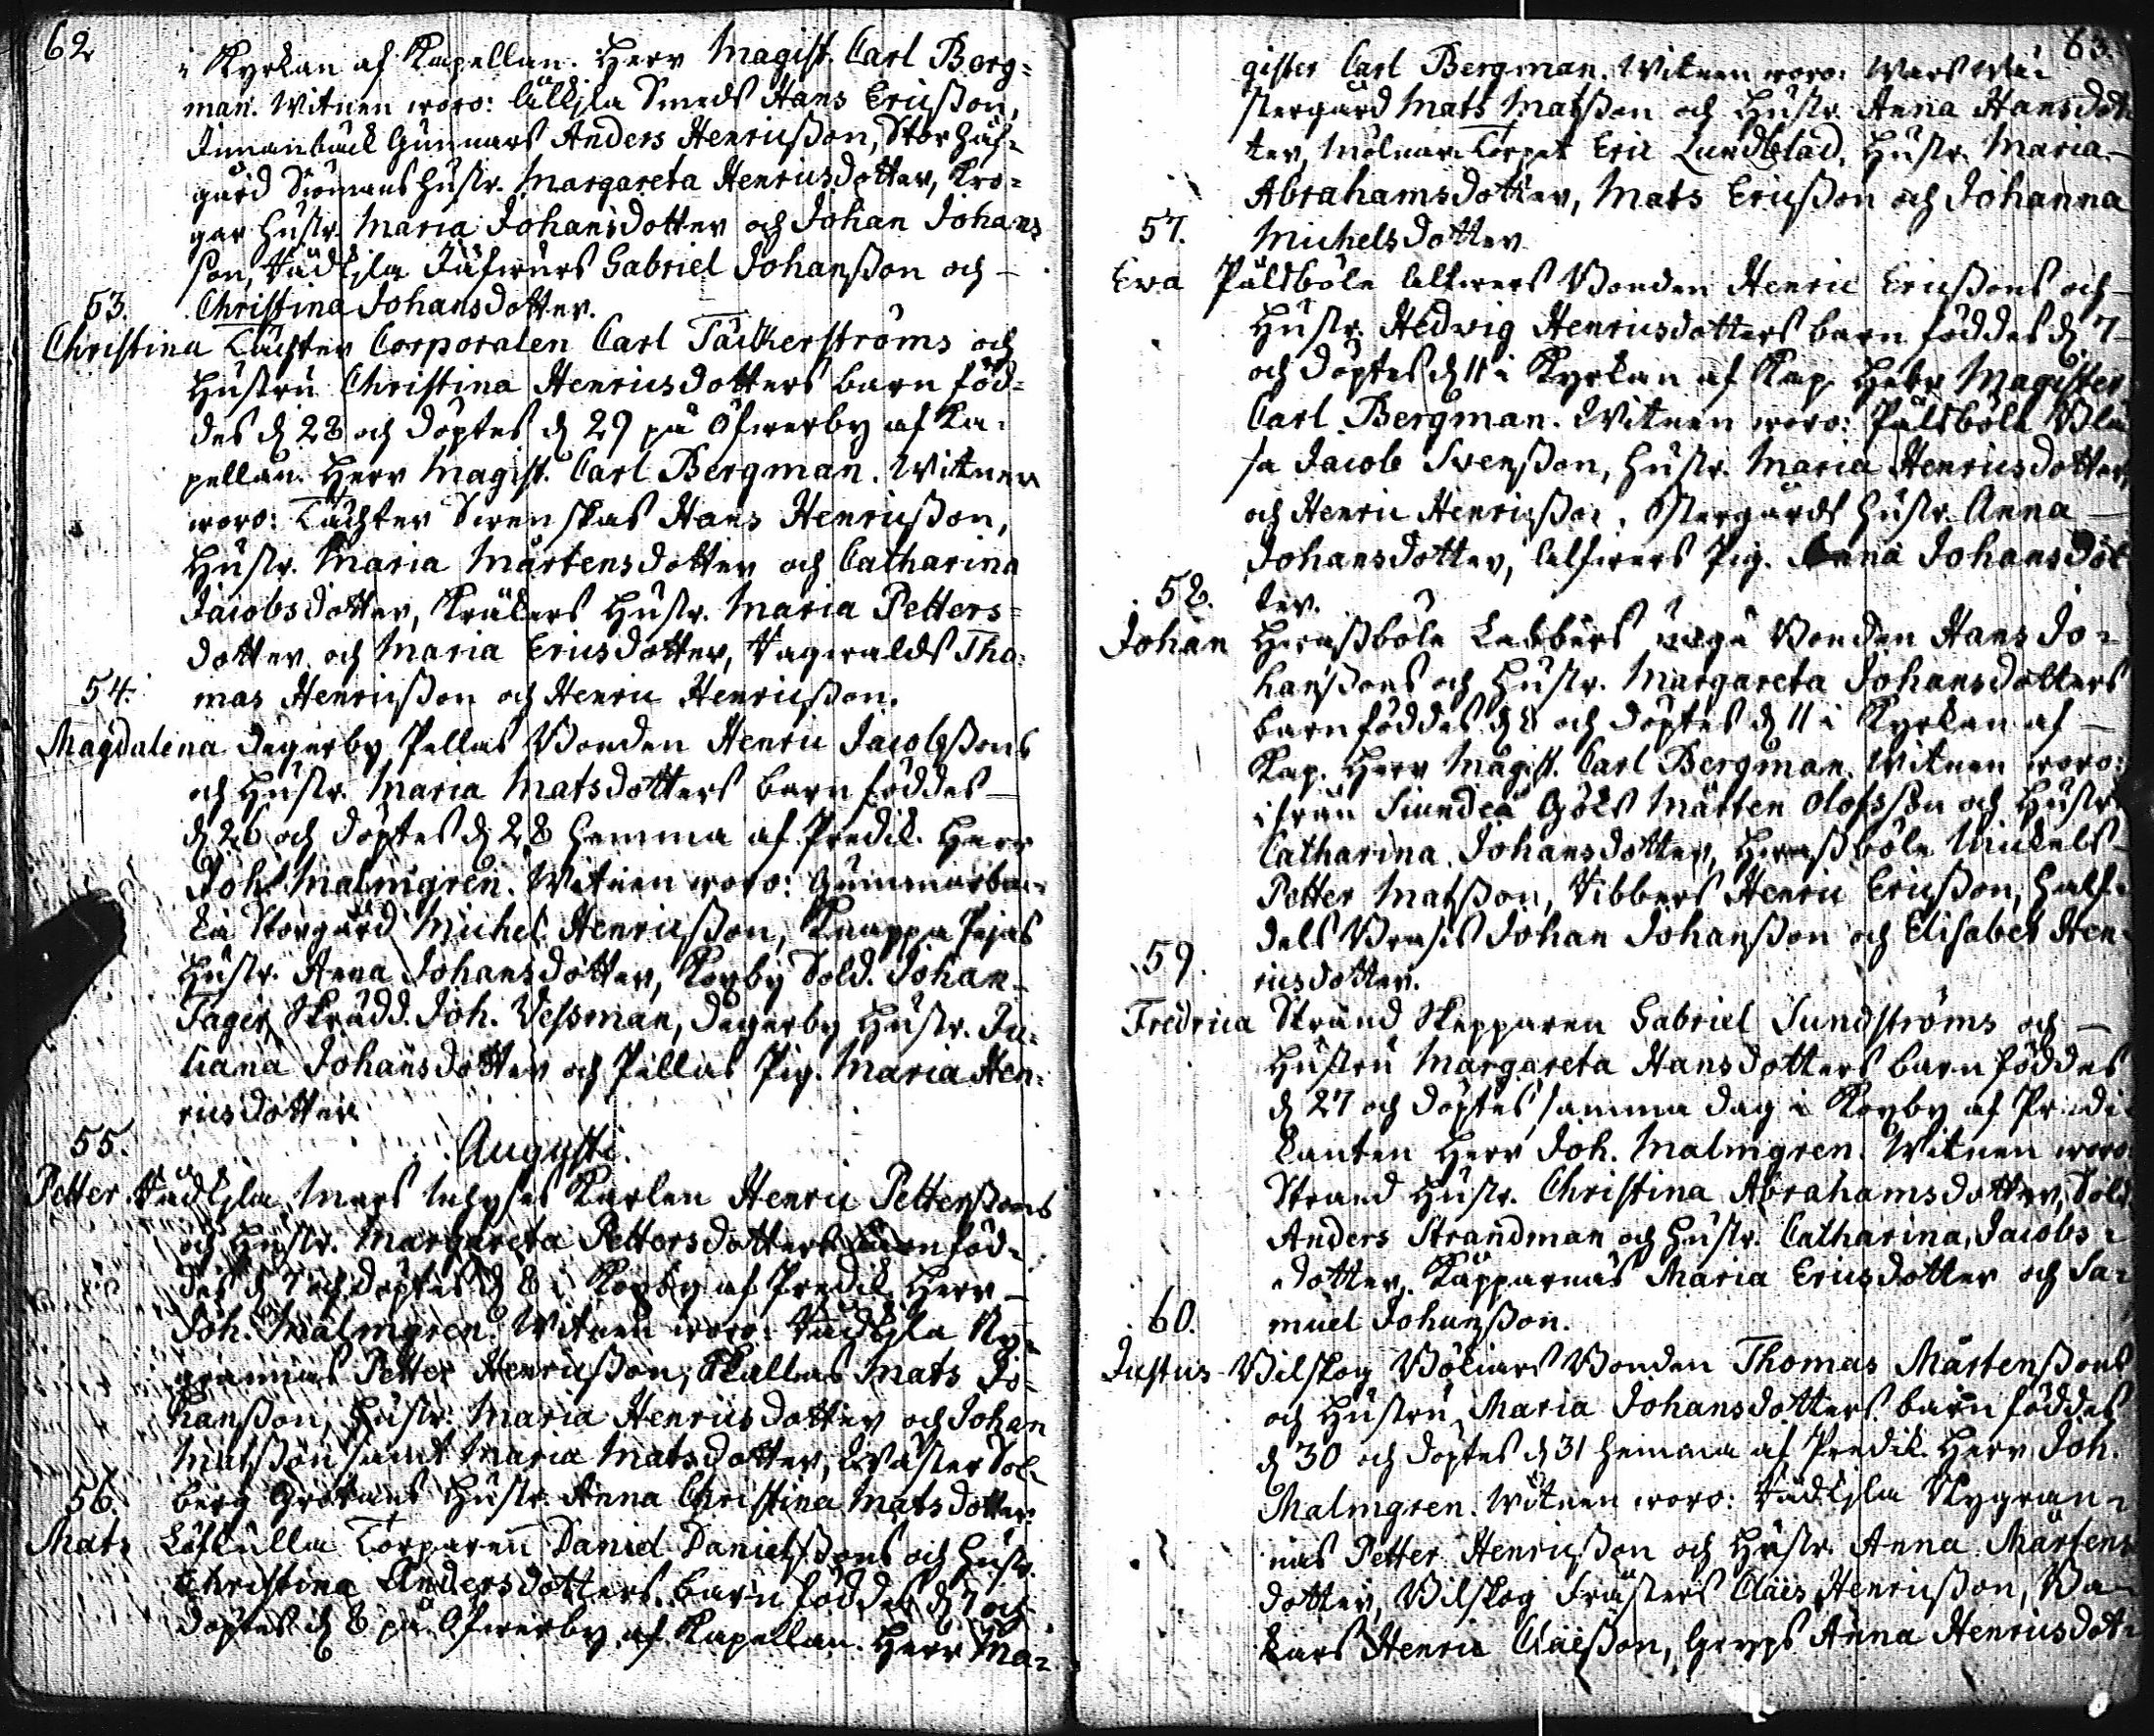 62
i Kyrkan af Kapellan. Herr Magist. Carl Berg=
man. Witnen woro: Smeds Hans Ericßon,
Gunnars Anders Henricßon,
gård Hustr. Margareta Henricsdotter, Kro=
gar Hustr. Maria Johansdotter och Johan Johans
son, Gabriel Johanßon och
53. Christina Johansdotter.
Christina Tächter Corporalen Carl Täckerströms och
Hustru Christina Henricsdotters barn föd=
des d 28 och döptes d 29 på Öfwerby af Ka=
pellan. Herr Magist. Carl Bergman. Witnen
woro: Tächter Swenskas Hans Henricßon,
Hustr. Maria Mårtensdotter och Catharina
Jacobsdotter, Hustr. Maria Petters=
dotter och Maria Ericsdotter, Tho=
54. mas Henricßon och Henric Henricßon.
Magdalena Degerby Pellas Bonden Henric Jacobßons
och Hustr. Maria Matsdotters barn föddes
d 26 och döptes d 28 hemma af Predik. Herr
Joh. Malmgren. Witnen woro: Gummarbac=
ka Storgård Michel Henricßon,
Hustr. Anna Johansdotter, Kopby Sold. Johan
Fager, Skrädd. Joh. Vessman, Degerby Hustr. Ju=
liana Johansdotter och Pellas Pig. Maria Hen=
ricsdotter.
55. Augusti.
Petter Karlen Henric Petterßons
och Hustr. Margareta Pettersdotters barn föd=
des d 7 och döptes d 8 i Kopby af Predik. Herr
Joh. Malmgren. Witnen woro: Ny=
grannas Petter Henricßon, Skallas Mats Jo=
hanßon, Hustr. Maria Henricsdotter och Johan
Matsßon samt Maria Matsdotter, Sol=
56. berg Hustr. Anna Christina Matsdotter.
Mats Löfkulla Torparen Daniel Danielßons och Hustr.
Christina Andersdotters barn föddes d 7 och
döptes d 8 på Öfwerby af Kapellan. Herr Ma=
63.
gister Carl Bergman. Witnen woro:
stergård Mats Matsßon och Hustr. Anna Hansdot=
ter, Torpet Eric Lundblad, Hustr. Maria
Abrahamsdotter, Mats Ericßon och Johanna
57. Michelsdotter.
Ewa Påldsböle Bonden Henric Ericßons och
Hustr. Hedwig Henricsdotters barn föddes d 7
och döptes d 11 i Kyrkan af Kap. Herr Magister
Carl Bergman. Witnen woro: Påldsböle Blå=
sa Jacob Svenßon, Hustr. Maria Henricsdotter,
och Henric Henricßon, Östergårds Hustr. Anna
Johansdotter, Pig. Anna Johansdot
58. ter.
Johan Bonden Hans Jo=
hanßons och Hustr. Margareta Johansdotters
barn föddes d 8 och döptes d 11 i Kyrkan af
Kap. Herr Magist. Carl Bergman. Witnen woro:
ifrån Siundeå Göks Mårten Olofsson och Hustr.
Catharina Johansdotter, Mickels
Petter Matsßon, Vibbers Henric Ericßon, Half=
dels Johan Johanßon och Elisabet Hen=
59. ricsdotter.
Fredrica Strand Skepparen Gabriel Sundströms och
Hustru Margareta Hansdotters barn föddes
d 27 och döptes samma dag i Kopby af Predi=
kanten Herr Joh. Malmgren. Witnen woro:
Strand Hustr. Christina Abrahamsdotter, Sold.
Anders Strandman och Hustr. Catharina Jacobs=
dotter, Käpparnäs Maria Ericsdotter och Sa=
60. muel Johanßon.
Justus Bilskog Bökars Bonden Thomas Mårtenßons
och Hustru Maria Johansdotters barn föddes
d 30 och döptes d 31 hemma af Predik. Herr Joh.
Malmgren. Witnen woro: Nygran=
nas Petter Henricßon och Hustr. Anna Mårtens
dotter, Bilskog Frästers Claës Henricßon, Ba=
kars Henric Claëßon, Anna Henricsdot=